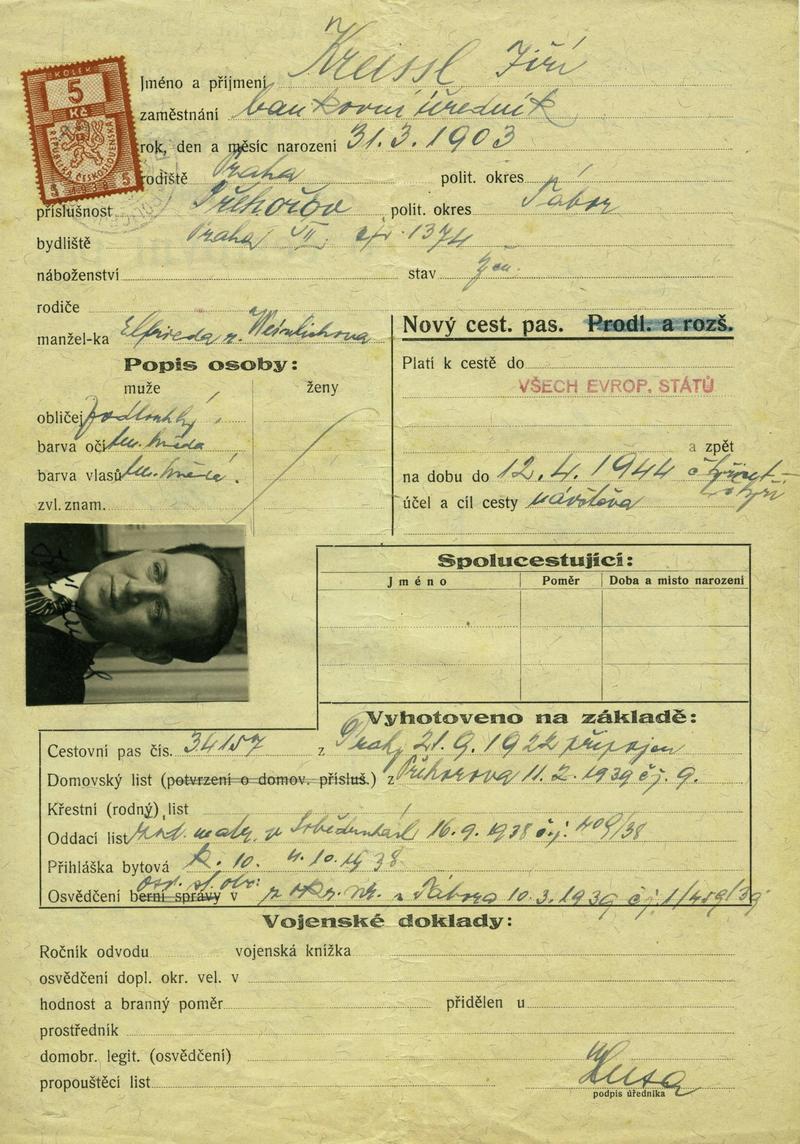 KOLEK
5
Kč
REPUBLIKA ČESKOSLOVENSKÁ
5 1938 5
Jméno a příjmení Kreissl Jiří
zaměstnání bankovní úředník
rok, den a měsíc narození 31.3.1903
rodiště Praha polit. okres
příslušnost Přehořov polit. okres Tábor
bydliště Praha VII, čp. 1374
náboženství stav žen.
rodiče
manžel-ka Elfrieda r.
Nový cest. pas. Prodl. a rozš.
Platí k cestě do
VŠECH EVROP. STÁTŮ
a zpět
na dobu do 12.4.1944 čtyřicet-
čtyři
účel a cíl cesty návštěva
Popis osoby:
muže ženy
obličej podlouhlý
barva očí tm. hnědá
barva vlasů tm. hnědá.
zvl. znam.
Spolucestující:
Jméno Poměr Doba a místo narození
Vyhotoveno na základě:
Cestovní pas čís. 34157 z Prahy 21.9.1922 připojen
Domovský list (potvrzení o domov. přísluš.) z Přehořova 11.2.1939 čj. 9.
Křestní (rodný) list
Oddací list 16.9.1938 čj. 409/38
Přihláška bytová 4.10.1938
Osvědčení berní správy v osv. st. obč. z okr. úř. z Tábora 10.3.1939 čj. 1/459/39
Vojenské doklady:
Ročník odvodu vojenská knížka
osvědčení dopl. okr. vel. v
hodnost a branný poměr přidělen u
prostředník
domobr. legit. (osvědčení)
propouštěcí list
podpis úředníka